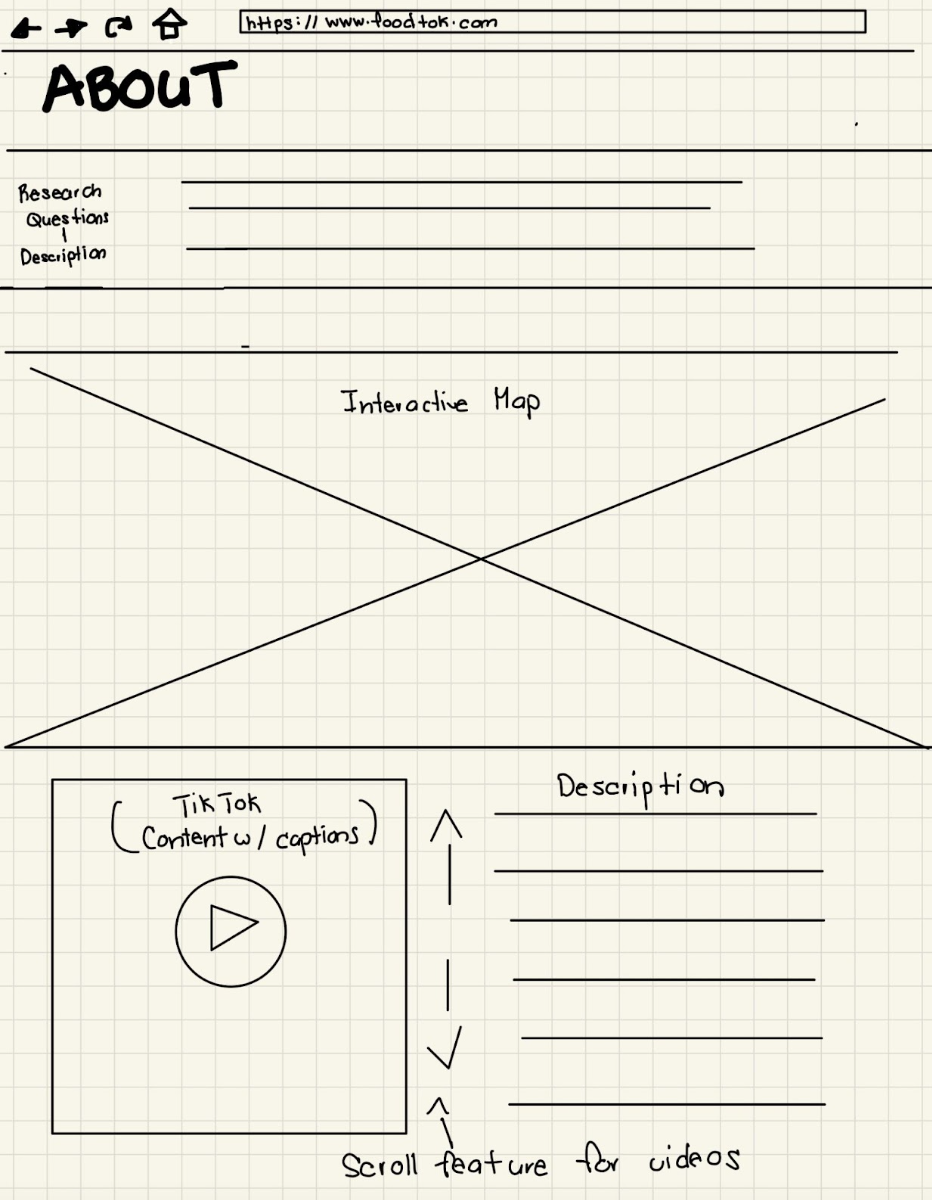 https://www.foodtok.com
ABOUT
Research
Questions
Description
Interactive Map
TikTok
(Content w/ captions)
Description
Scroll feature for videos